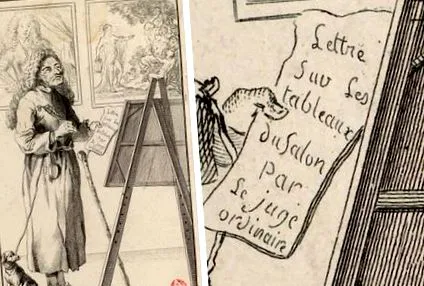 Lettre
sur Les
tableaux
du Salon
par
Le juge
ordinaire